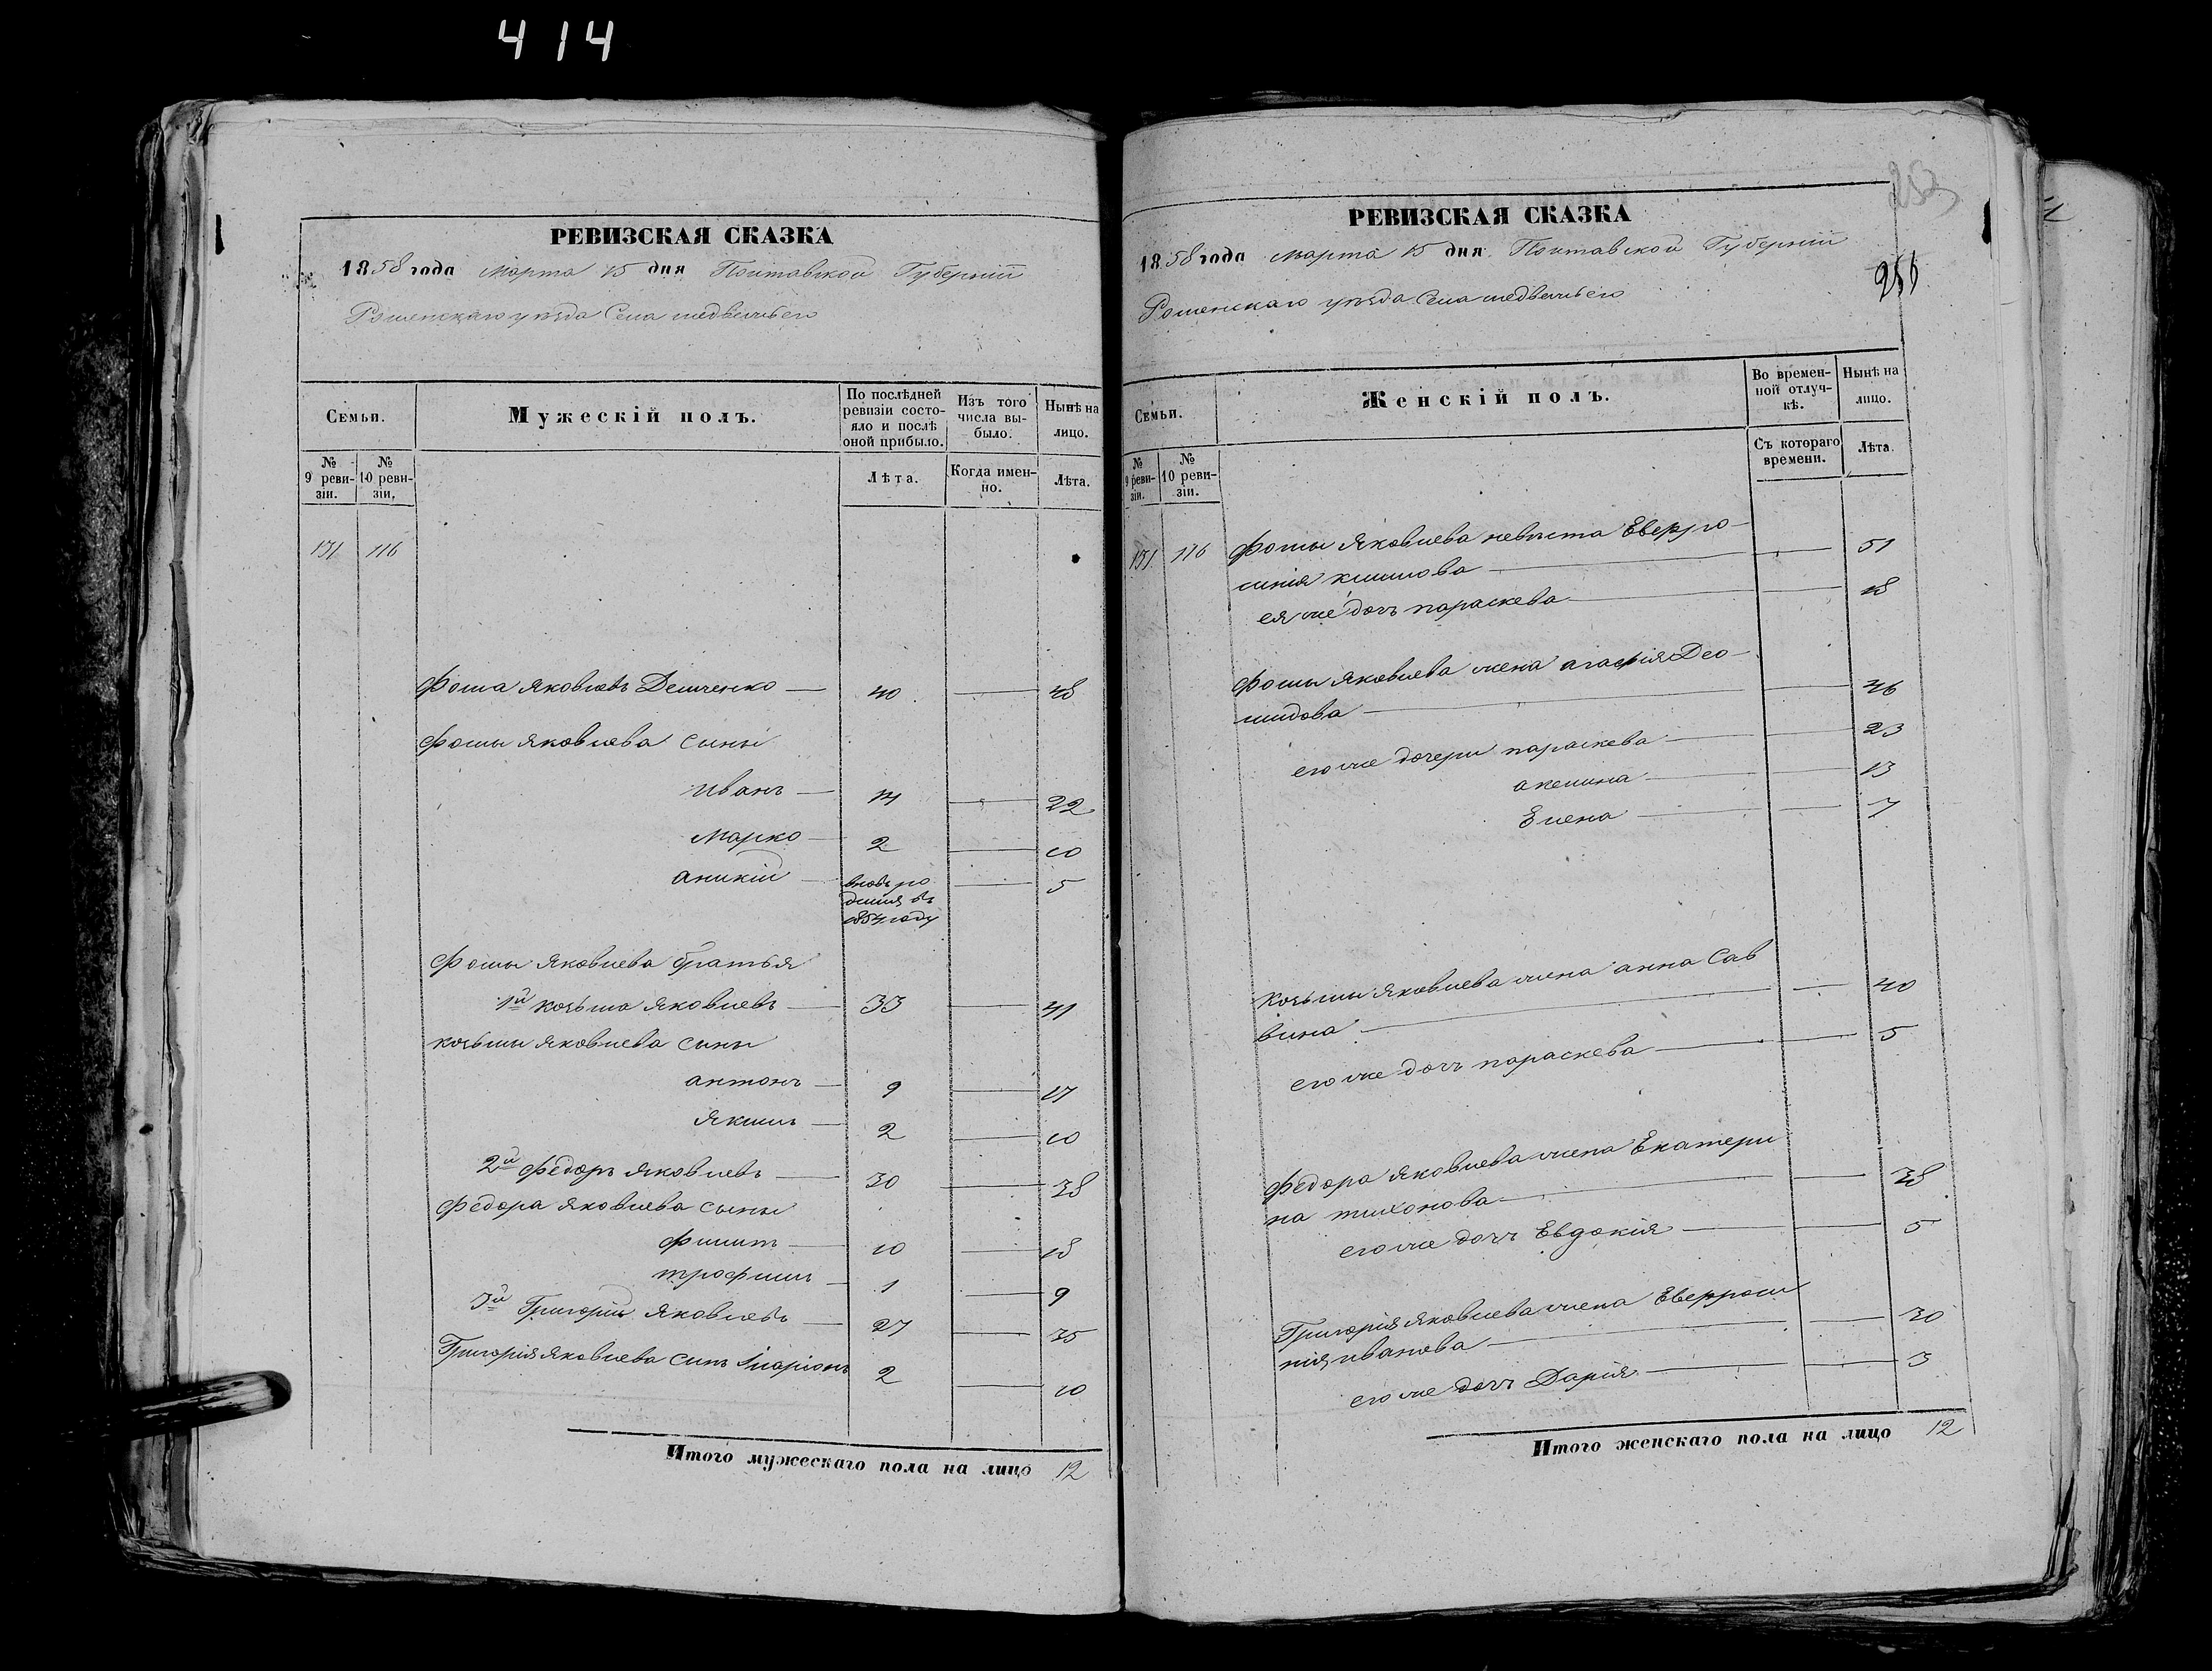 414
РЕВИЗСКАЯ СКАЗКА
1858 года Марта 15 дня Полтавской Губерніи
Роменскаго уѣзда Села медвежьего
Семьи.
Мужескій полъ.
По послѣдней ревизіи состояло и послѣ оной прибыло.
Изъ того числа выбыло.
Нынѣ на лицо.
№ 9 ревизіи.
№ 10 ревизіи.
Лѣта.
Когда именно.
Лѣта.
131 116
Фома Яковлевъ Демченко — 40 — 48
Фомы Яковлева сыны
Иванъ — 14 — 22
Марко — 2 — 10
Аникій — вновь ро — 5
дился въ
1854 году
Фомы Яковлева братья
1й Козьма Яковлевъ — 33 — 41
Козьмы Яковлева сыны
антонъ — 9 — 17
Якимъ — 2 — 10
2й Федоръ Яковлевъ — 30 — 38
Федора Яковлева сыны
Филипъ — 10 — 18
трофимъ — 1 — 9
3й Григорій Яковлевъ — 27 — 35
Григорія Яковлева сынъ Іларіонъ 2 — 10
Итого мужескаго пола на лицо 12
253
РЕВИЗСКАЯ СКАЗКА
1858 года марта 15 дня Полтавской Губерніи
Роменскаго уѣзда Села медвежьего
Семьи.
Женскій полъ.
Во временной отлучкѣ.
Нынѣ на лицо.
№ 9 ревизіи.
№ 10 ревизіи.
Съ котораго времени.
Лѣта.
131 116 Фомы Яковлева невѣста Евфро-
синія климова — 51
ея же дочь параскева — 18
Фомы Яковлева жена агафія Део-
мидова — 46
его же дочери параскева — 23
акелина — 13
Елена — 7
Козьмы Яковлева жена анна Сав
вина — 40
его же дочь параскева — 5
Федора Яковлева жена Екатери
на тихонова — 38
его же дочь Евдокія — 5
Григорія Яковлева жена Евфроси
нія иванова — 30
его же дочь Дарія — 3
Итого женскаго пола на лицо 12